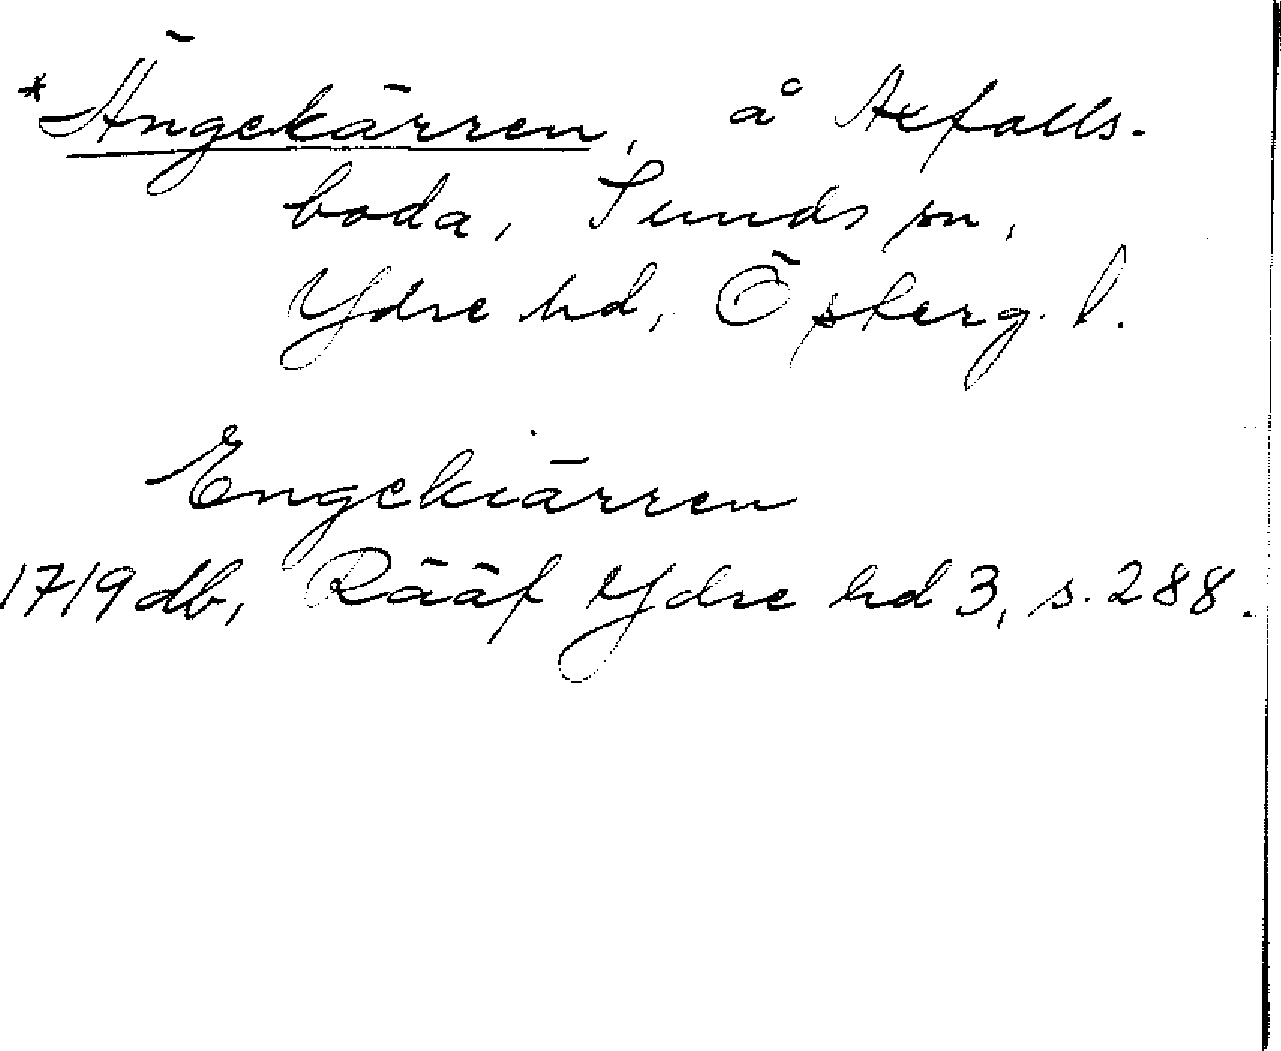 *Ängekärren, å Axfalls-
boda, Sunds sn,
Ydre hd, Österg. l.
Engekiärren
1719 db, Rääf Ydre hd 3, s. 288.